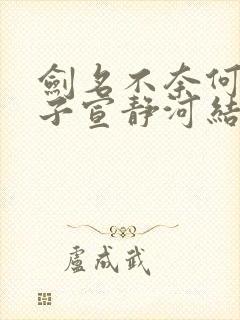 劍名不奈何
子宣靜河結
盧成武